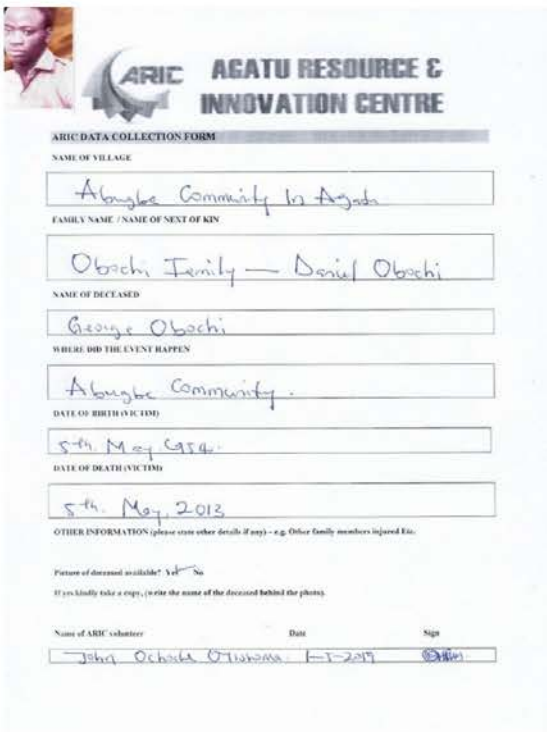 ARIC AGATU RESOURCE &
INNOVATION CENTRE
ARIC DATA COLLECTION FORM
NAME OF VILLAGE
Abugbe Community In Agatu
FAMILY NAME / NAME OF NEXT OF KIN
Obochi Family — Daniel Obochi
NAME OF DECEASED
George Obochi
WHERE DID THE EVENT HAPPEN
Abugbe Community.
DATE OF BIRTH (VICTIM)
5th. May
DATE OF DEATH (VICTIM)
5th. May, 2013
OTHER INFORMATION (please state other details if any) – e.g. Other family members injured Etc.
Picture of deceased available? Yes No
If yes kindly take a copy, (write the name of the deceased behind the photo).
Name of ARIC volunteer Date Sign
John